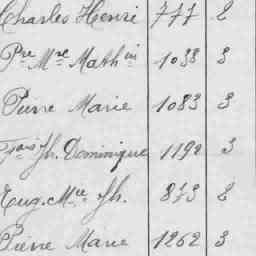 Charles Henri 777 2
Pre Mre Mathin 1038 3
Pierre Marie 1083 3
Fçois Jh. Dominique 1192 3
Eug. Mce Jh. 813 2
Pierre Marie 1262 3